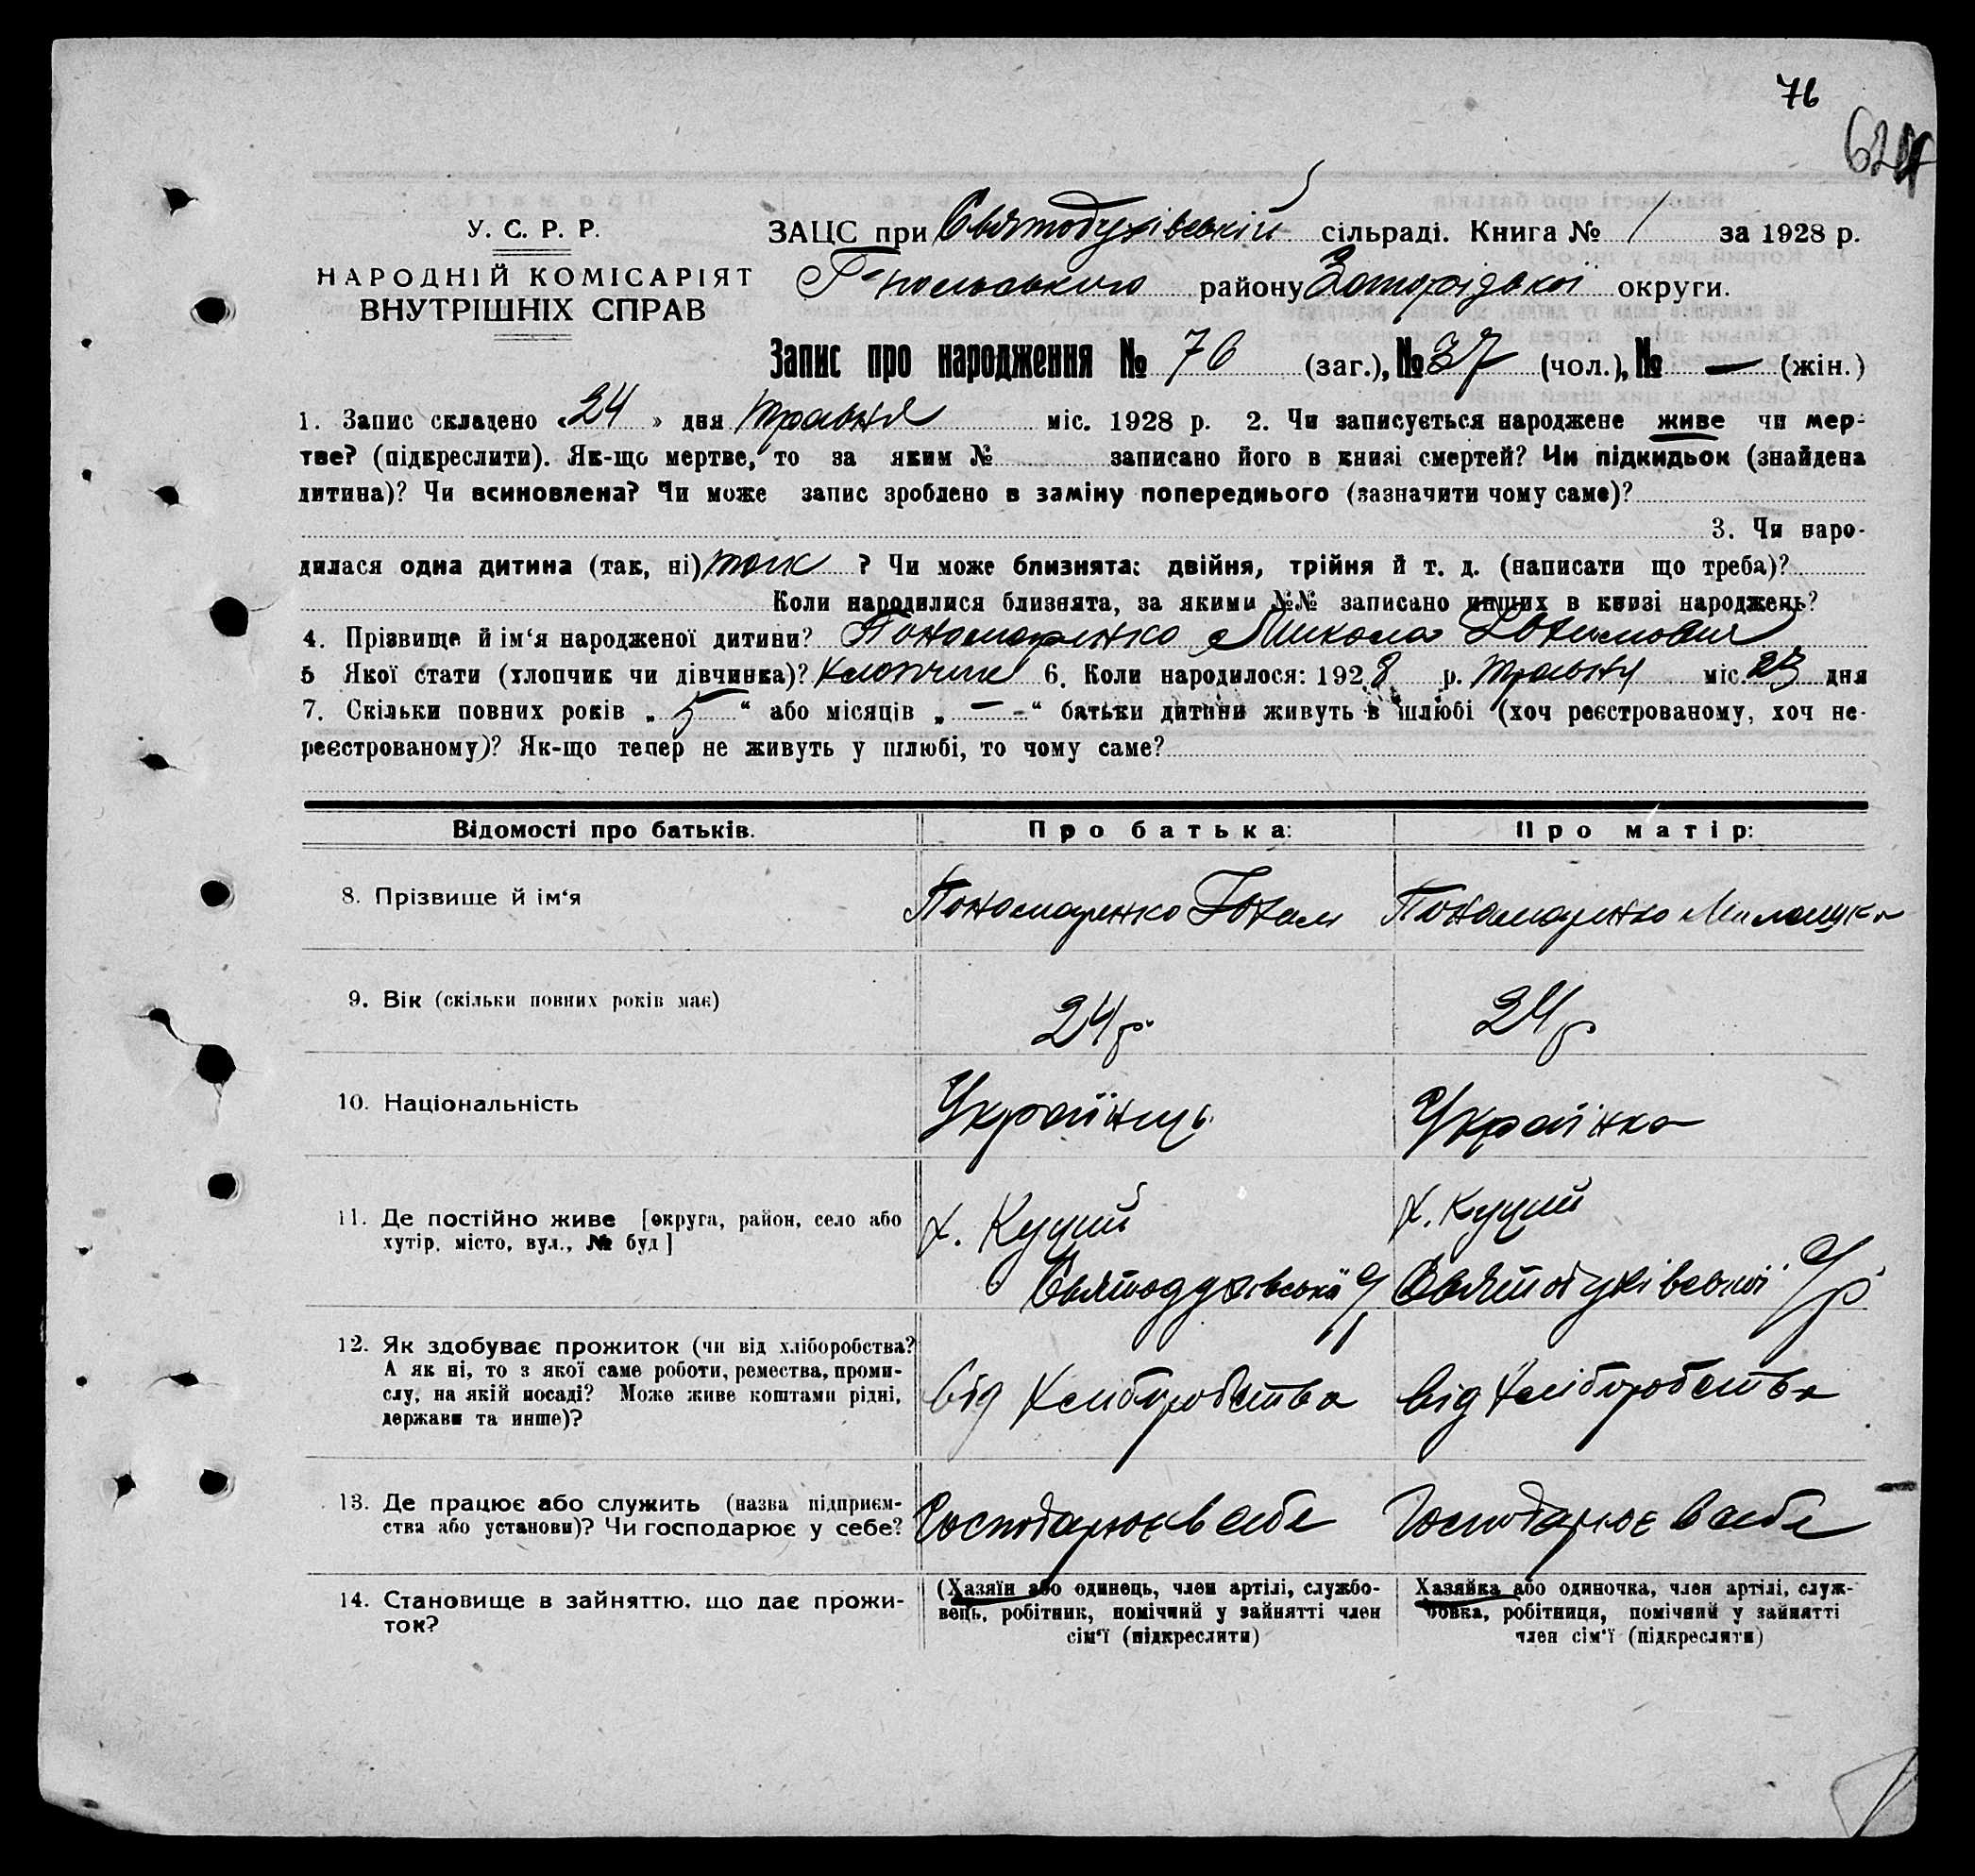 76
У. С. Р. Р.
НАРОДНІЙ КОМІСАРІЯТ
ВНУТРІШНІХ СПРАВ
ЗАЦС при Святодухівській сільраді. Книга № 1 за 1928 р.
району Запорізької округи.
Запис про народження № 76 (заг.), № 37 (чол.), № — (жін.)
1. Запис складено «24» дня травня міс. 1928 р. 2. Чи записується народжене живе чи мер-
тве? (підкреслити). Як-що мертве, то за яким № записано його в книзі смертей? Чи підкидьок (знайдена
дитина)? Чи всиновлена? Чи може запис зроблено в заміну попереднього (зазначити чому саме)?
3. Чи наро-
дилася одна дитина (так, ні) так ? Чи може близнята: двійня, трійня й т. д. (написати що треба)?
Коли народилися близнята, за якими №№ записано инших в книзі народжень?
4. Прізвище й ім‘я народженої дитини? Пономаренко Микола
5 Якої стати (хлопчик чи дівчинка)? хлопчик 6. Коли народилося: 1928 р. травня міс. 23 дня
7. Скільки повних років „ 5 “ або місяців „ — “ батьки дитини живуть в шлюбі (хоч реєстрованому, хоч не-
реєстрованому)? Як-що тепер не живуть у шлюбі, то чому саме?
Відомості про батьків. Про батька: Про матір:
8. Прізвище й ім‘я Пономаренко Пономаренко
9. Вік (скільки повних років має) 24 р. 24 р
10. Національність Українець Українка
11. Де постійно живе [округа, район, село або
хутір, місто, вул., № буд]
х. Куций
Святодухівської с/р
х. Куций
Святодухівської с/р
12. Як здобуває прожиток (чи від хліборобства?
А як ні, то з якої саме роботи, ремества, проми-
слу, на якій посаді? Може живе коштами рідні,
держави та инше)?
від хліборобства від хліборобства
13. Де працює або служить (назва підприєм-
ства або установи)? Чи господарює у себе?
Господарює в себе Господарює в себе
14. Становище в зайняттю, що дає прожи-
ток?
(Хазяїн або одинець, член артілі, службо-
вець, робітник, помічний у зайнятті член
сім‘ї (підкреслити)
Хазяйка або одиночка, член артілі, служ-
бовка, робітниця, помічний у зайнятті
член сім‘ї (підкреслити)